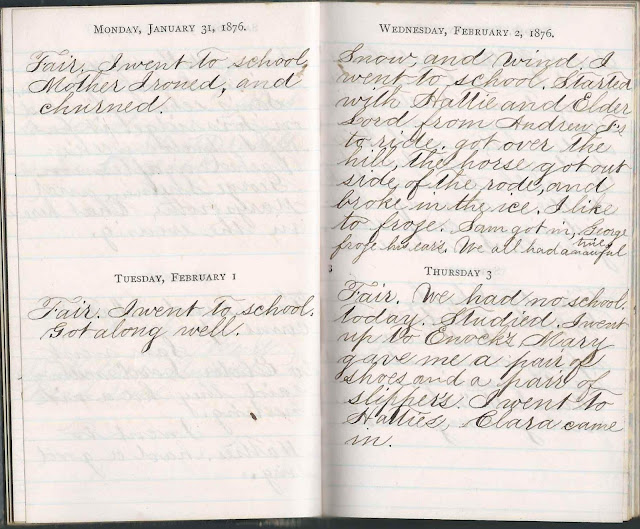 MONDAY, JANUARY 31, 1876.
Fair. I went to school,
Mother Ironed, and
churned.
TUESDAY, FEBRUARY 1
Fair. I went to school.
Got along well.
WEDNESDAY, FEBRUARY 2, 1876.
Snow, and wind. I
went to school. Started
with Hattie and Elder
Lord from Andrew
to ride. got over the
hill, the horse got out
side of the rode, and
broke in the ice. I like
to froze. Sam got in, George
froze his ears. We all had an awful
time
THURSDAY 3
Fair. We had no school.
today. Studied. I went
up to Enock's Mary
gave me a pair of
shoes and a pair of
slippers. I went to
Hatties, Clara came
in.